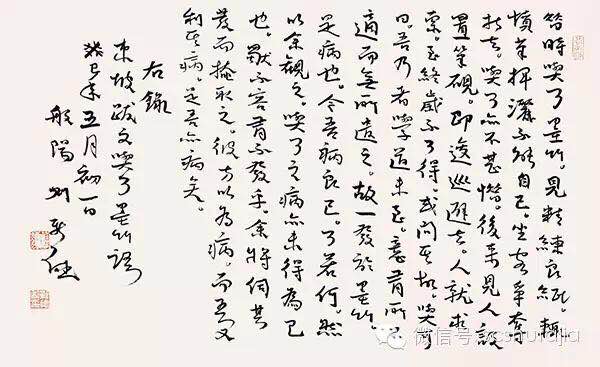 昔時與可墨竹。見精縑良紙。輒
憤筆揮灑不能自已。坐客爭奪
持去。與可亦不甚惜。後來見人設
置筆硯。即逡巡避去。人就求
索。至終歲不可得。或問其故。與可
曰。吾乃者學道未至。意有所不
適而無所遣之。故一發於墨竹。
是病也。今吾病良已。可若何。然
以余觀之。與可之病亦未得為已
也。獨不容有不發乎。余將伺其
發而掩取之。彼方以為病。而吾又
利其病。是吾亦病矣。
右錄
東坡跋文與可墨竹語
癸巳年五月初一日
般陽
微信号: zcshufajia